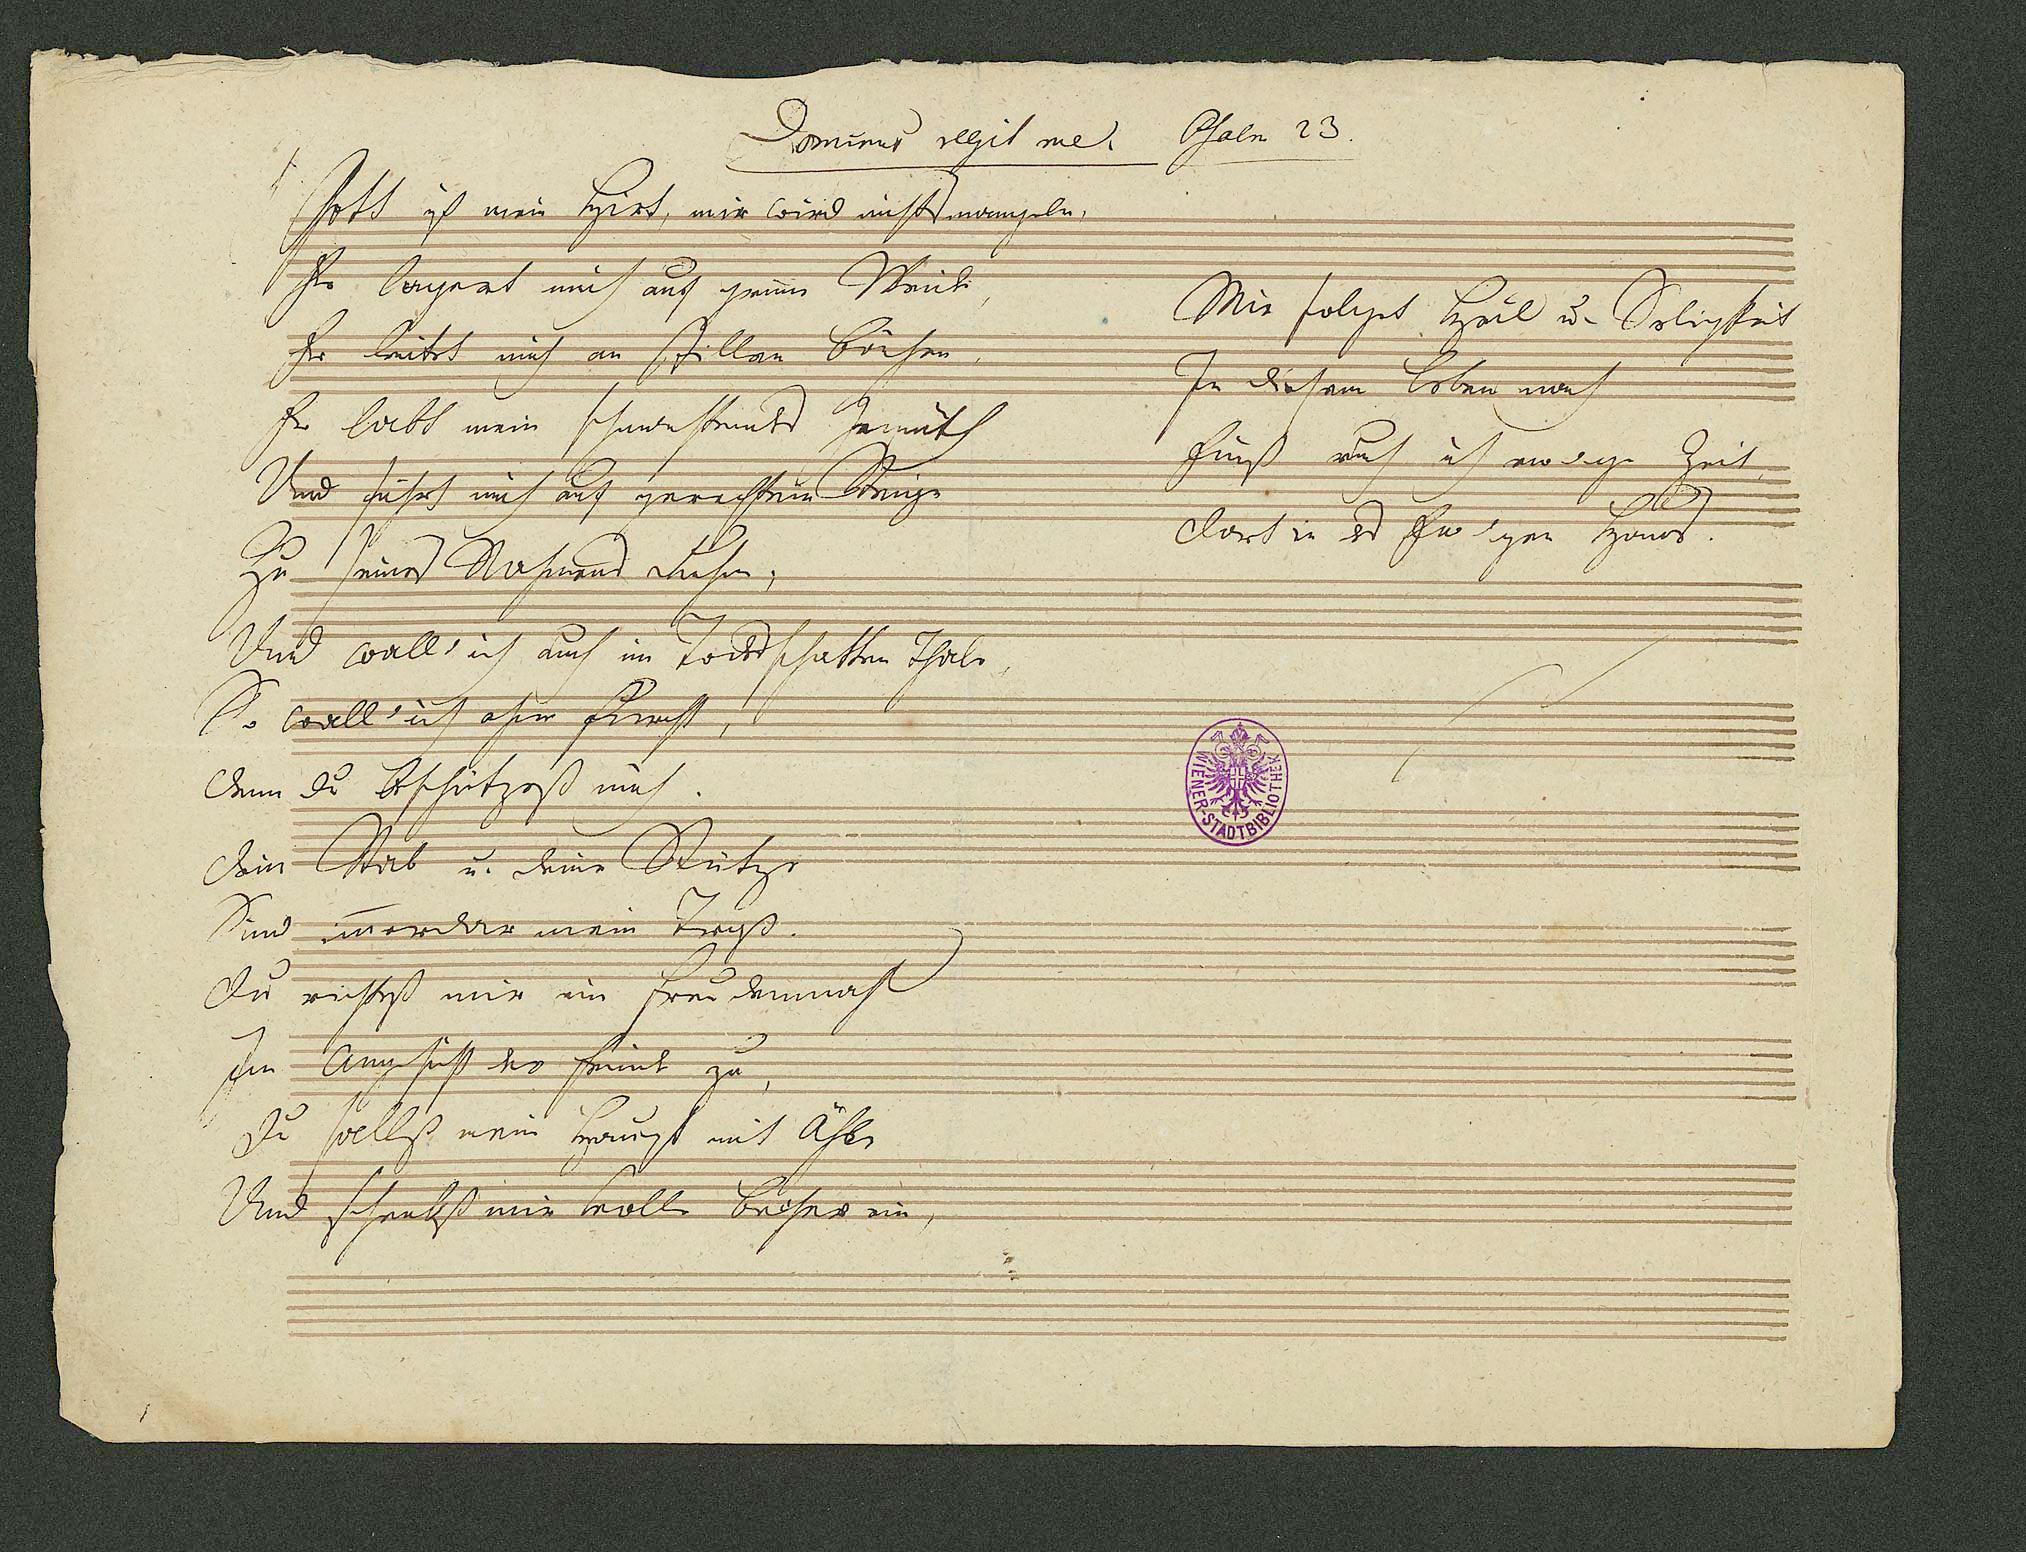 Dominus regit me. Psalm 23.
Gott ist mein Hirt, mir wird nichts mangeln,
Er lagert mich auf grüne Weide,
Er leitet mich an stillen Bächen,
Er labt mein schmachtendes Gemüth
Und führt mich auf gerechtem Steige
Zu seines Nahmens Ruhm,
Und wall' ich auch im Todesschatten Thale,
So wall' ich ohne Furcht,
denn du beschützest mich.
dein Stab u. deine Stütze
Sind immerdar mein Trost.
Du richtest mir ein Freudenmahl
Im Angesicht der Feinde zu,
Du salbst mein Haupt mit Öhle
Und schenkst mir volle Becher ein,
Mir folget Heil u. Seligkeit
In diesem Leben nach
Einst ruh ich ew'ge Zeit,
dort in des Ew'gen Haus.
WIENER-STADTBIBLIOTHEK